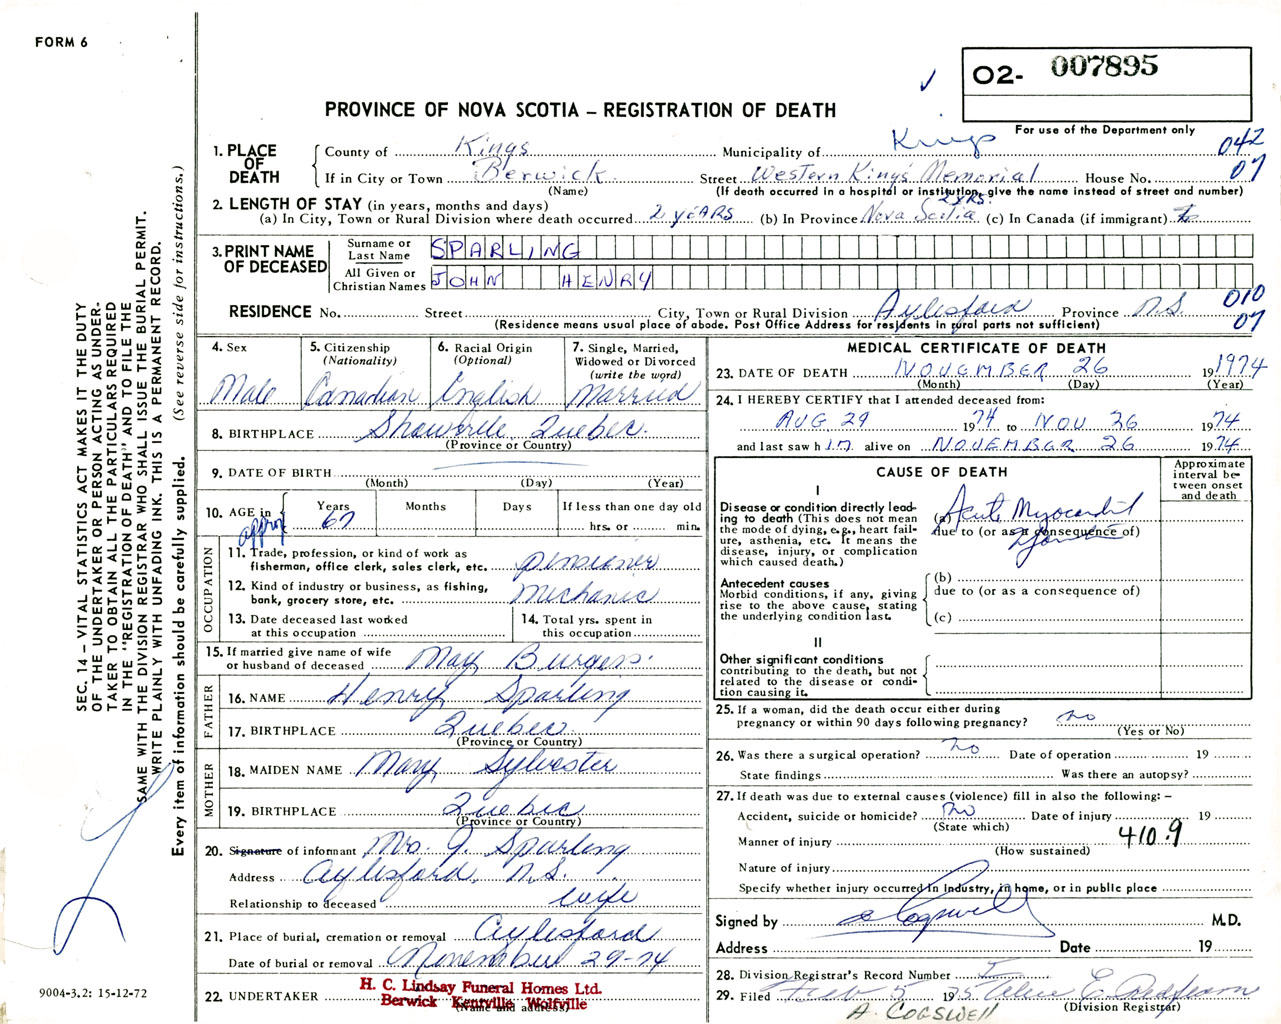 FORM 6
O2- 007895
PROVINCE OF NOVA SCOTIA – REGISTRATION OF DEATH
For use of the Department only
1. PLACE OF DEATH
County of Kings Municipality of Kings 042
If in City or Town Berwick Street Western Kings Memorial House No. 07
(Name) (If death occurred in a hospital or institution, give the name instead of street and number)
2. LENGTH OF STAY (in years, months and days) 2 yrs.
(a) In City, Town or Rural Division where death occurred 2 years (b) In Province Nova Scotia (c) In Canada (if immigrant)
3. PRINT NAME OF DECEASED
Surname or Last Name SPARLING
All Given or Christian Names JOHN HENRY
RESIDENCE No. Street City, Town or Rural Division Aylesford Province N.S. 010 07
(Residence means usual place of abode. Post Office Address for residents in rural parts not sufficient)
4. Sex Male
5. Citizenship (Nationality) Canadian
6. Racial Origin (Optional) English
7. Single, Married, Widowed or Divorced (write the word) Married
8. BIRTHPLACE Quebec.
(Province or Country)
9. DATE OF BIRTH
(Month) (Day) (Year)
10. AGE in approx Years 67 Months Days If less than one day old
hrs. or min.
OCCUPATION
11. Trade, profession, or kind of work as fisherman, office clerk, sales clerk, etc. pensioner
12. Kind of industry or business, as fishing, bank, grocery store, etc. Mechanic
13. Date deceased last worked at this occupation
14. Total yrs. spent in this occupation
15. If married give name of wife or husband of deceased May Burgess.
FATHER
16. NAME Henry Sparling
17. BIRTHPLACE Quebec
(Province or Country)
MOTHER
18. MAIDEN NAME Mary Sylvester
19. BIRTHPLACE Quebec
(Province or Country)
20. Signature of informant Mrs. J. Sparling
Address Aylesford, N.S.
Relationship to deceased wife
21. Place of burial, cremation or removal Aylesford
Date of burial or removal November 29-74
22. UNDERTAKER H. C. Lindsay Funeral Homes Ltd.
Berwick Kentville Wolfville
(Name and address)
MEDICAL CERTIFICATE OF DEATH
23. DATE OF DEATH NOVEMBER 26 19 1974
(Month) (Day) (Year)
24. I HEREBY CERTIFY that I attended deceased from:
AUG 29 1974 to NOV 26 1974
and last saw h im alive on NOVEMBER 26 1974
CAUSE OF DEATH
Approximate interval between onset and death
I
Disease or condition directly leading to death (This does not mean the mode of dying, e.g., heart failure, asthenia, etc. It means the disease, injury, or complication which caused death.)
(a) Acute Myocardial
due to (or as a consequence of)
Antecedent causes
Morbid conditions, if any, giving rise to the above cause, stating the underlying condition last.
(b)
due to (or as a consequence of)
(c)
II
Other significant conditions contributing to the death, but not related to the disease or condition causing it.
25. If a woman, did the death occur either during pregnancy or within 90 days following pregnancy? no
(Yes or No)
26. Was there a surgical operation? no Date of operation 19
State findings Was there an autopsy?
27. If death was due to external causes (violence) fill in also the following: –
Accident, suicide or homicide? no Date of injury 19
(State which)
Manner of injury 410.9
(How sustained)
Nature of injury
Specify whether injury occurred in Industry, in home, or in public place
Signed by Cogswell M.D.
Address Date 19
28. Division Registrar's Record Number
29. Filed Feb 5 1975
(Division Registrar)
A. COGSWELL
SEC. 14 – VITAL STATISTICS ACT MAKES IT THE DUTY
OF THE UNDERTAKER OR PERSON ACTING AS UNDER-
TAKER TO OBTAIN ALL THE PARTICULARS REQUIRED
IN THE "REGISTRATION OF DEATH" AND TO FILE THE
SAME WITH THE DIVISION REGISTRAR WHO SHALL ISSUE THE BURIAL PERMIT.
WRITE PLAINLY WITH UNFADING INK. THIS IS A PERMANENT RECORD.
Every item of information should be carefully supplied. (See reverse side for instructions.)
9004-3.2: 15-12-72